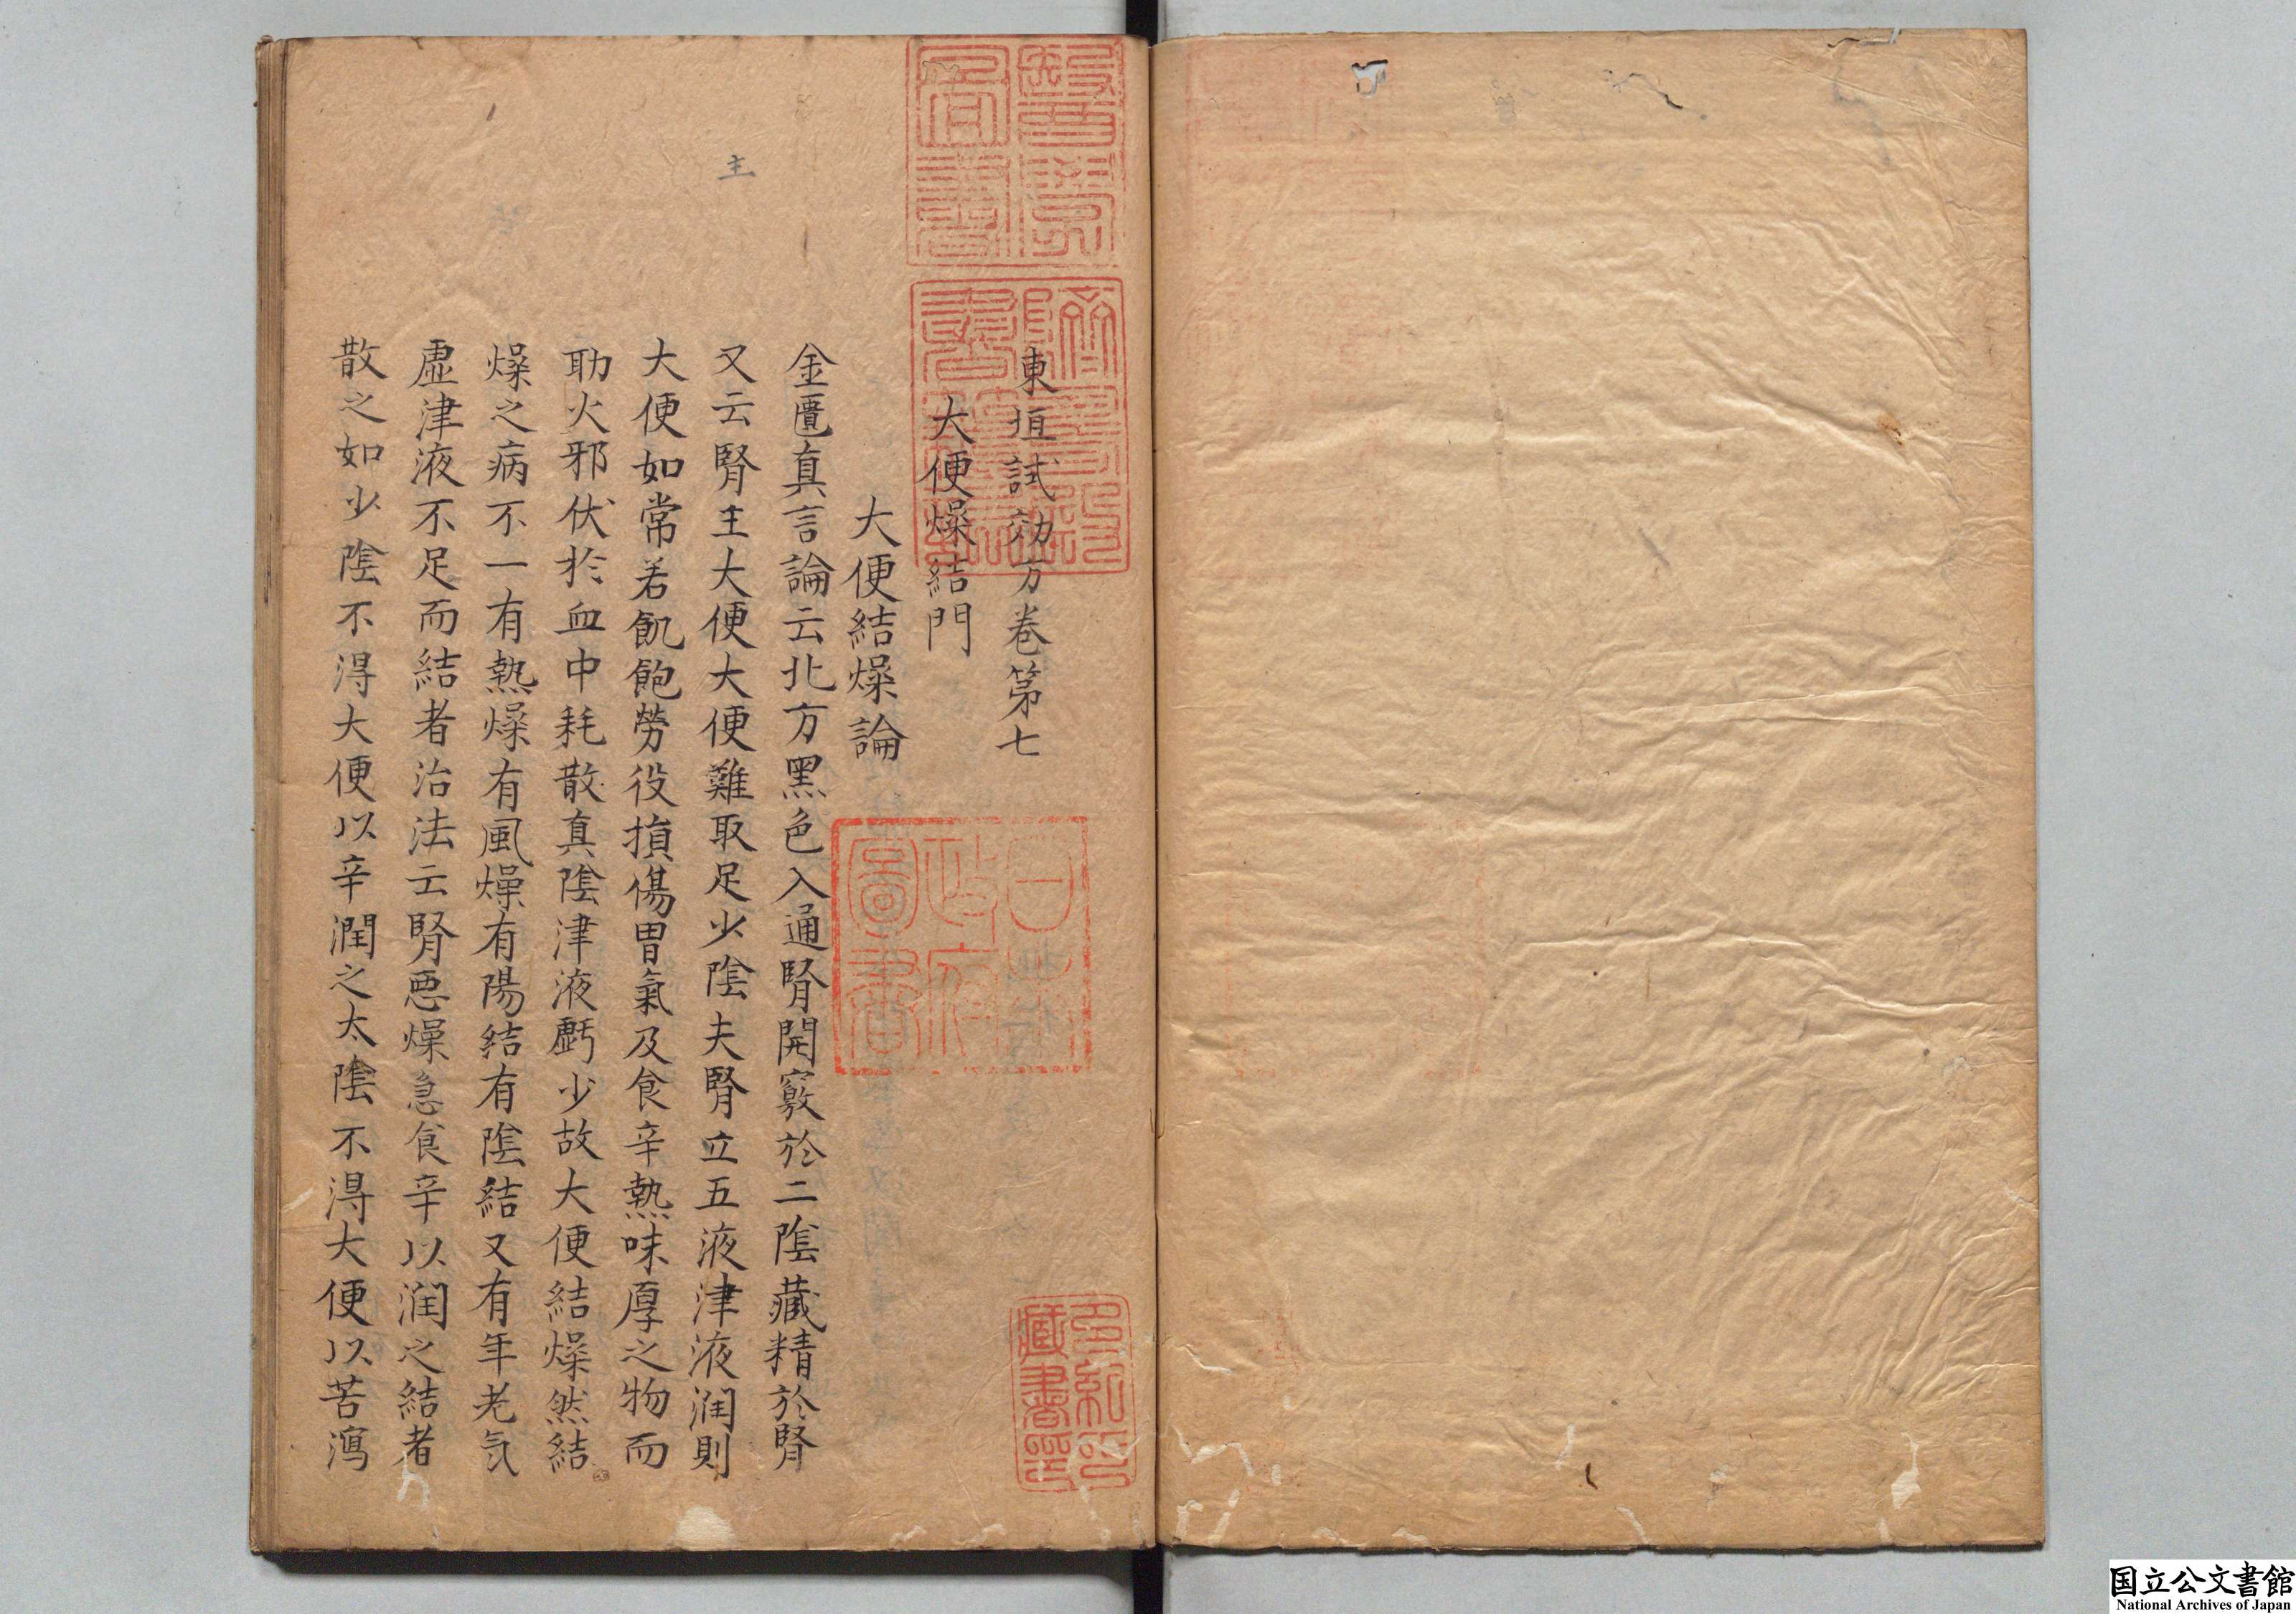 東垣試効方卷第七
大便燥結門
大便結燥論
金匱真言論云北方黑色入通腎開竅於二陰藏精於腎
又云腎主大便大便難取足少陰夫腎立五液津液潤則
大便如常若飢飽勞役損傷胃氣及食辛熱味厚之物而
助火邪伏於血中耗散真陰津液虧少故大便結燥然結
燥之病不一有熱燥有風燥有陽結有陰結又有年老气
虛津液不足而結者治法云腎惡燥急食辛以潤之結者
散之如少陰不得大便以辛潤之太陰不得大便以苦瀉
主
醫學圖書
躋壽館醫籍
日本政府圖書
多紀氏藏書印
国立公文書館
National Archives of Japan